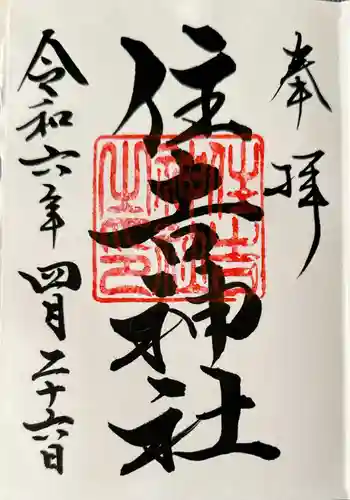 奉拝
住吉神社
住吉
神社
之印
令和六年四月二十六日